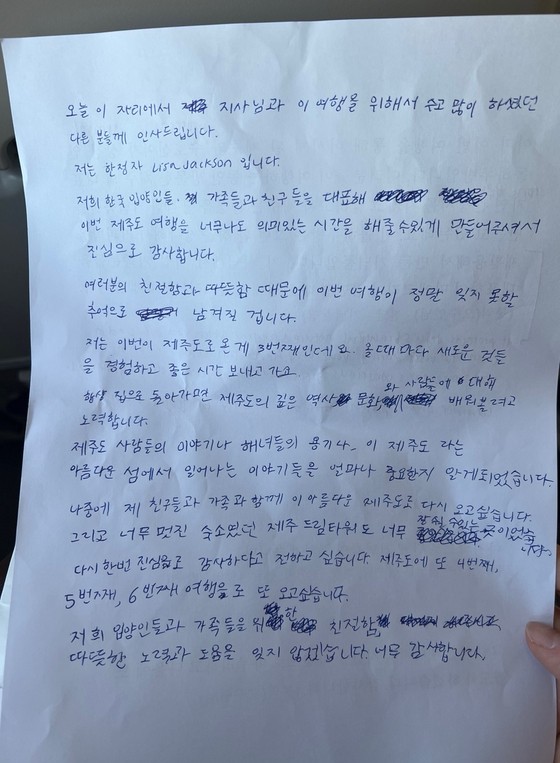 오늘 이 자리에서 지사님과 이 여행을 위해서 수고 많이 하셨던
다른 분들께 인사드립니다.
저는 한정자 Lisa Jackson 입니다.
저희 한국 입양인들, 가족들과 친구들을 대표해
이번 제주도 여행을 너무나도 의미있는 시간을 해줄수있게 만들어주셔서
진심으로 감사합니다.
여러분의 친절함과 따뜻함 때문에 이번 여행이 정말 잊지 못할
추억으로 남겨질 겁니다.
저는 이번이 제주도로 온게 3번째인데요. 올때마다 새로운 것들
을 경험하고 좋은 시간 보내고 가요.
항상 집으로 돌아가면 제주도의 깊은 역사 문화와 사람들에 대해 배워볼려고
노력합니다.
제주도 사람들의 이야기나 해녀들의 용기나 이 제주도 라는
아름다운 섬에서 일어나는 이야기들을 얼마나 중요한지 알게되었습니다.
나중에 제 친구들과 가족과 함께 이 아름다운 제주도로 다시 오고싶습니다.
그리고 너무 멋진 숙소였던 제주 드림타워도 너무 잘 쉴 수있는 곳이었습니다.
다시한번 진심으로 감사하다고 전하고 싶습니다. 제주도에 또 4번째,
5번째, 6번째 여행으로 또 오고싶습니다.
저희 입양인들과 가족들을 위한 친절함,
따뜻한 노력과 도움을 잊지 않겠습니다. 너무 감사합니다.